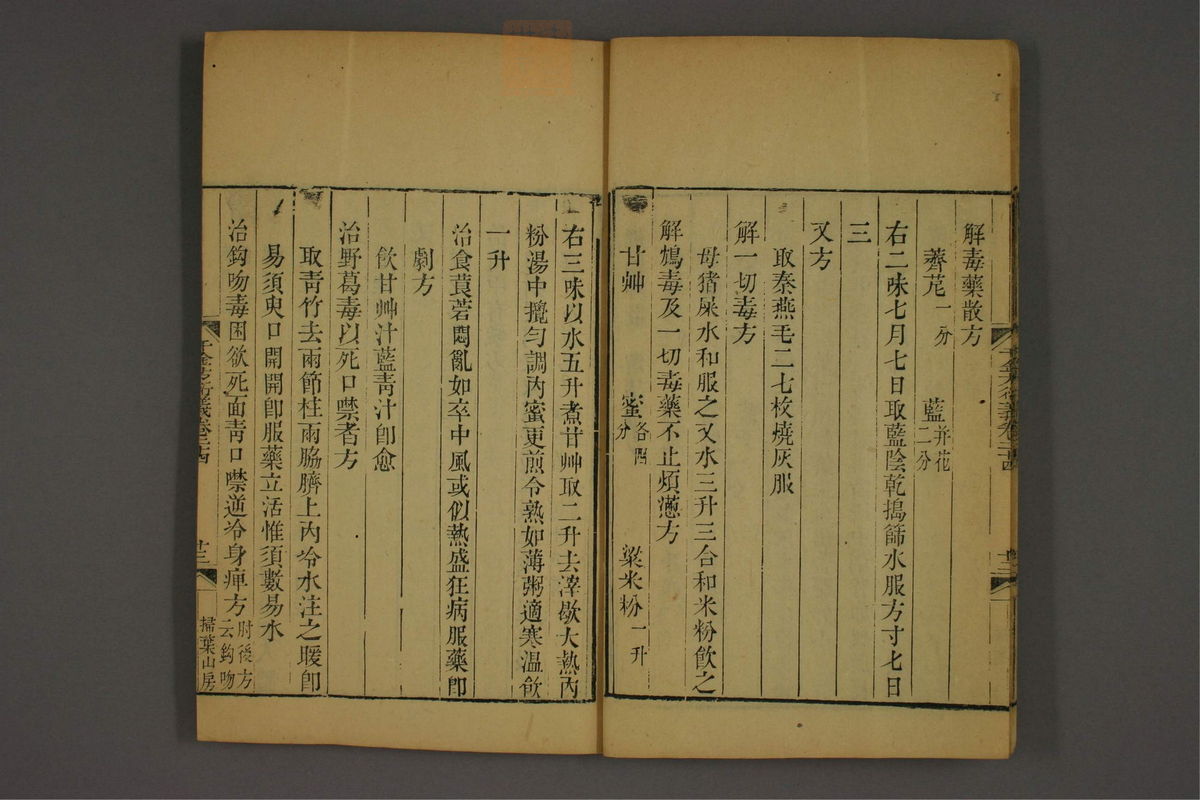 解毒藥散方
薺苨一分 藍幷花二分
右二味七月七日取藍陰乾搗篩水服方寸匕日
三
又方
取秦燕毛二七枚燒灰服
解一切毒方
母猪屎水和服之又水三升三合和米粉飮之
解鴆毒及一切毒藥不止煩懣方
甘艸 蜜各四分 粱米粉一升
右三味以水五升煮甘艸取二升去滓歇大熱內
粉湯中攪勻調內蜜更煎令熟如薄粥適寒溫飮
一升
治食莨菪悶亂如卒中風或似熱盛狂病服藥卽
劇方
飮甘艸汁藍靑汁卽愈
治野葛毒以死口噤者方
取靑竹去兩節柱兩脇臍上內冷水注之暖卽
易須臾口開開卽服藥立活惟須數易水
治鈎吻毒困欲死面靑口噤逆冷身痺方肘後方云鈎吻
千金方衍義卷二十四
廿三
掃葉山房